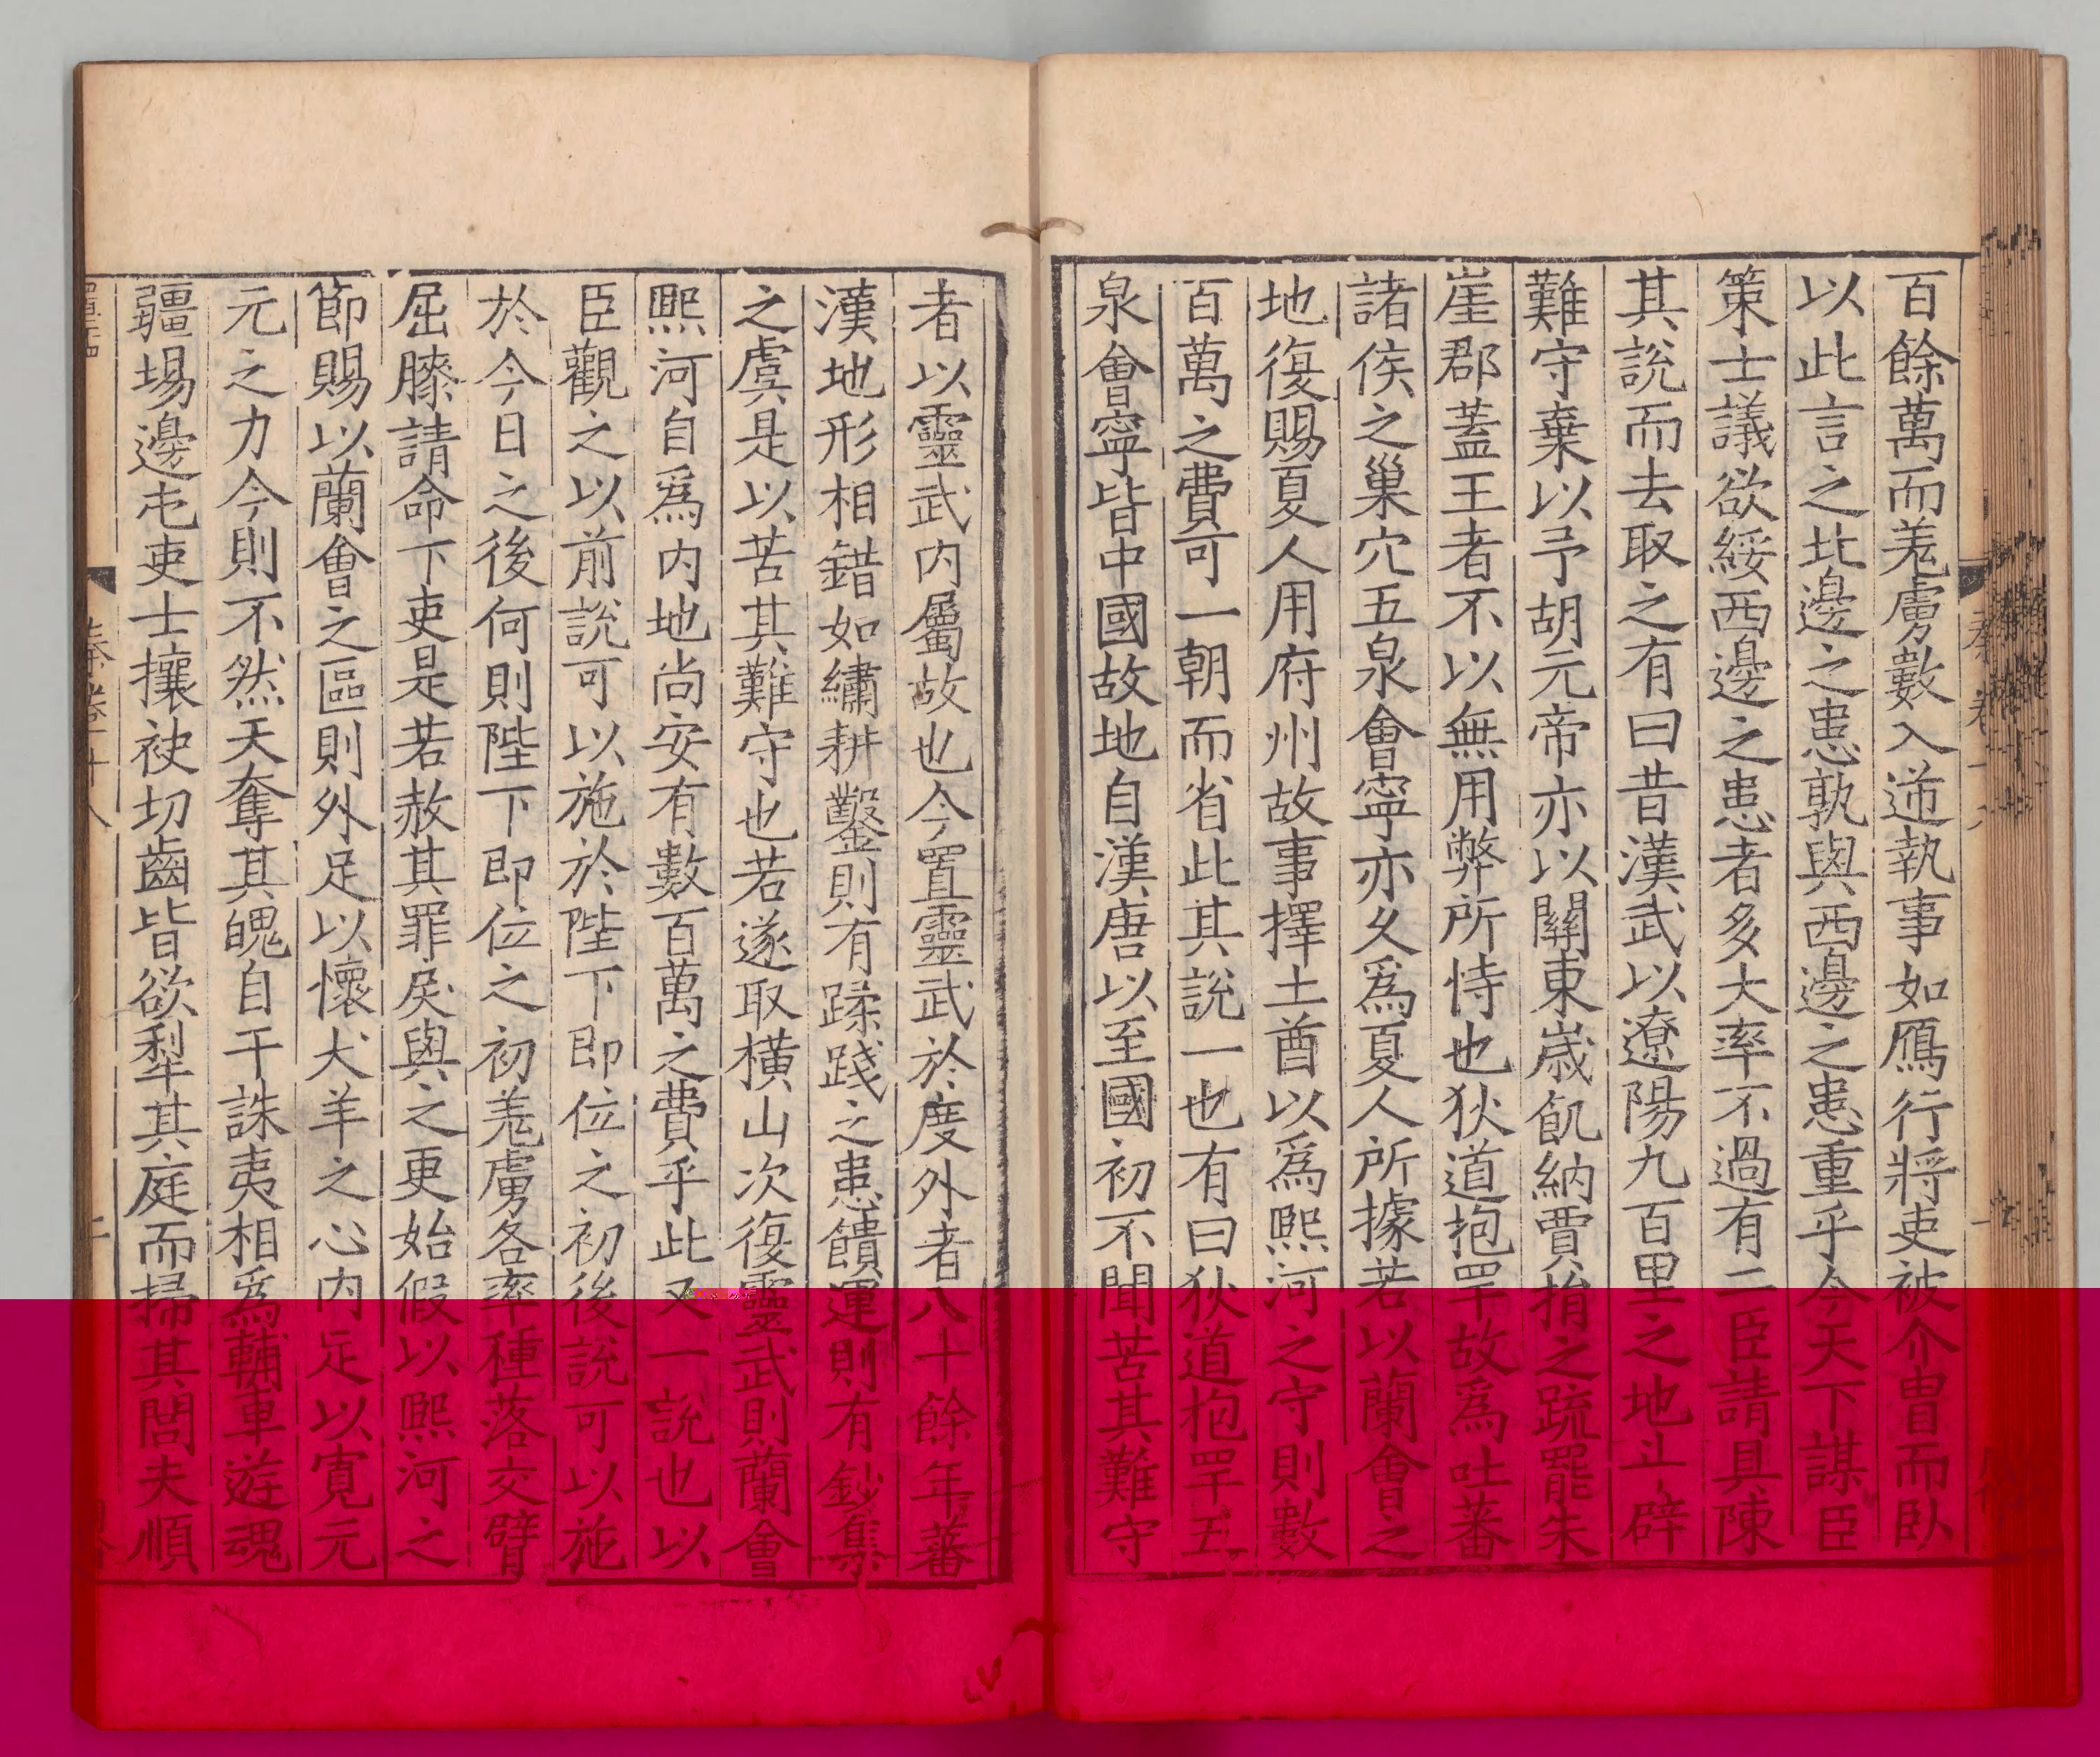 百餘萬而羗虜數入逆執事如鴈行將吏被介冑而臥
以此言之北邊之患孰與西邊之患重乎今天下謀臣
策士議欲綏西邊之患者多大率不過有二臣請具陳
其說而去取之有曰昔漢武以遼陽九百里之地止辟
難守棄以予胡元帝亦以關東歲飢納賈捐之疏罷朱
崖郡蓋王者不以無用弊所恃也狄道抱罕故爲吐蕃
諸侯之巢穴五泉會寧亦久爲夏人所據若以蘭會之
地復賜夏人用府州故事擇土酋以爲熙河之守則數
百萬之費可一朝而省此其說一也有曰狄道抱罕五
泉會寧皆中國故地自漢唐以至國初不聞苦其難守
者以靈武内屬故也今置靈武於度外者八十餘年蕃
漢地形相錯如繡耕鑿則有蹂踐之患饋運則有鈔集
之虞是以苦其難守也若遂取横山次復靈武則蘭會
熙河自爲内地尚安有數百萬之費乎此又一說也以
臣觀之以前說可以施於陛下即位之初後說可以施
於今日之後何則陛下即位之初羗虜各率種落交臂
屈膝請命下吏是若赦其罪戾與之更始假以熙河之
節賜以蘭會之區則外足以懷犬羊之心内足以寬元
元之力今則不然天奪其魄自干誅夷相爲輔車遊魂
疆埸邊屯吏士攘袂切齒皆欲犁其庭而掃其閭夫順